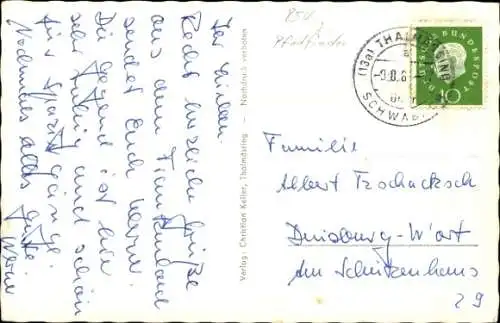 Ihr Lieben.
Recht herzliche Grüße
aus dem
sendet Euch Werner.
Die Gegend ist hier
sehr ruhig und schön
für Spaziergänge.
Nochmals alles gute
Werner
Verlag: Christian Keller, Thalmässing – Nachdruck verboten
Pfadfinder
(13a) THALMÄSSING
SCHWAB
DEUTSCHE BUNDESPOST
10
Familie
Albert Tschacksch
Duisburg-Wort
Am Schützenhaus
29